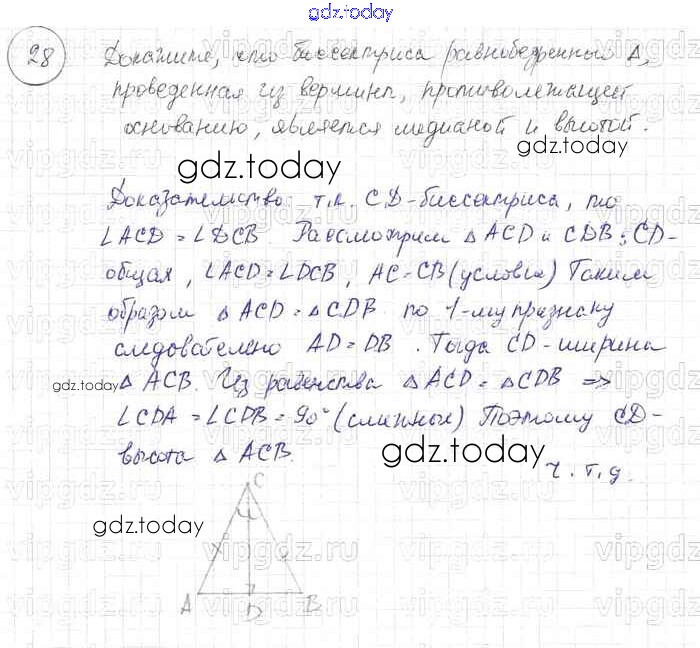 gdz.today
28 Докажите, что биссектриса равнобедренный Δ,
проведенная из вершины, противолежащей
основанию, является медианой и высотой.
gdz.today
Доказательство: т.к. CD-биссектриса, то
∠ACD = ∠DCB. Рассмотрим Δ ACD и CDB: CD-
общая, ∠ACD = ∠DCB, AC=CB (условие) Таким
образом Δ ACD = Δ CDB по 1-му признаку
следователено AD = DB. Тогда CD-ширина
gdz.today
Δ ACB. Из равенства Δ ACD = Δ CDB =>
∠CDA = ∠CDB = 90° (смежные) Поэтому CD-
высота Δ ACB.
gdz.today
ч.т.д.
C
gdz.today
A D B
vipgdz.ru